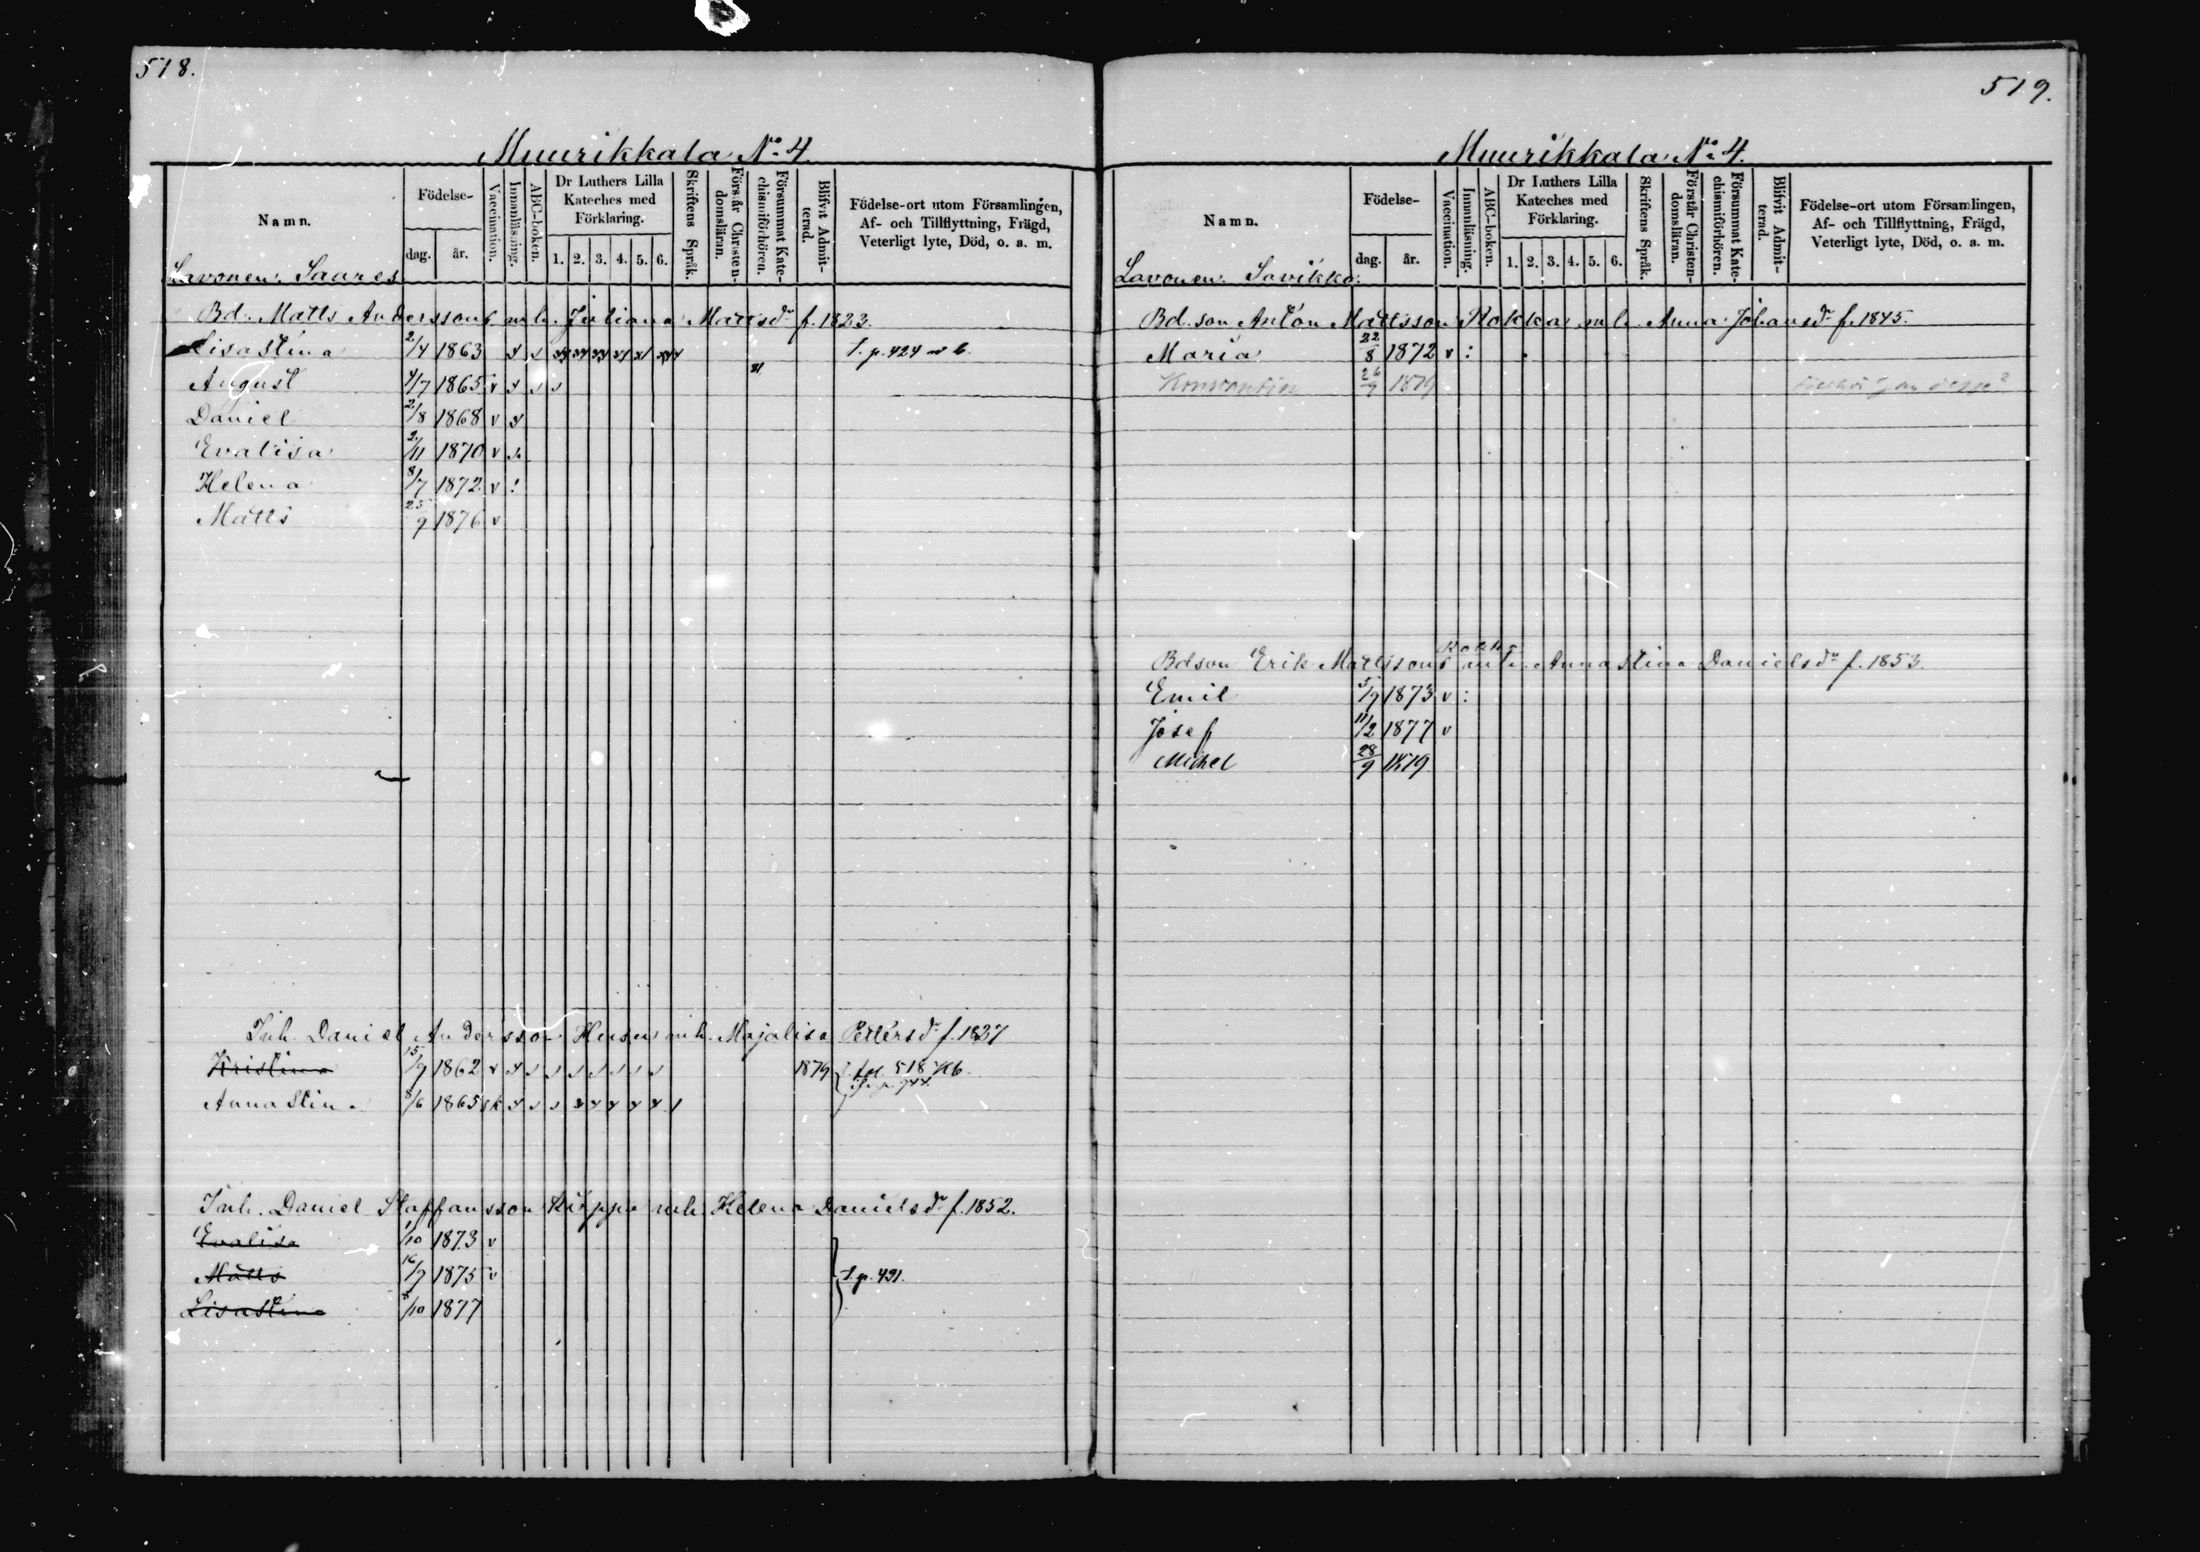 518.
Muurikkala No 4.
Namn. Födelse- dag. år. Vaccination. Innanläsning. ABC-boken. Dr Luthers Lilla Kateches med Förklaring. 1. 2. 3. 4. 5. 6. Skriftens Språk. Förstår Christendomsläran. Försummat Katechismiförhören. Blifvit Admitterad. Födelse-ort utom Församlingen, Af- och Tillflyttning, Frägd, Veterligt lyte, Död, o. a. m.
Lavonen. Saares
Bd. Matts Anderssons m h. Juliana Mattsdr f. 1823.
Lisastina 2/4 1863 1. p. 424
August 1/7 1865 v
Daniel 2/8 1868 v
Evalisa 2/11 1870 v
Helena 8/7 1872 v :
Matts 25/9 1876 v
Inh. Daniel Andersson m h. Majalisa Pettersd. f. 1827
Kristina 15/9 1862 v 1879 fol. 518
Annastina 8/6 1865
Inh. Daniel Staffansson m h. Helena Danielsdr f. 1852.
Evalisa 1/10 1873 v
Matts 16/7 1875 v 1. p. 491.
Lisastina 8/10 1877
519.
Muurikkala No 4.
Namn. Födelse- dag. år. Vaccination. Innanläsning. ABC-boken. Dr Luthers Lilla Kateches med Förklaring. 1. 2. 3. 4. 5. 6. Skriftens Språk. Förstår Christendomsläran. Försummat Katechismiförhören. Blifvit Admitterad. Födelse-ort utom Församlingen, Af- och Tillflyttning, Frägd, Veterligt lyte, Död, o. a. m.
Lavonen. Savikko.
Bd. son Anton Mattsson Rokka m h. Anna Johansdr f. 1845.
Maria 22/8 1872 v :
Konstantin 26/9 1879
Rokka
Bdson Erik Mattssons m h. Annastina Danielsdr f. 1853.
Emil 5/9 1873 v :
Josef 11/2 1877 v
Michel 28/9 1879